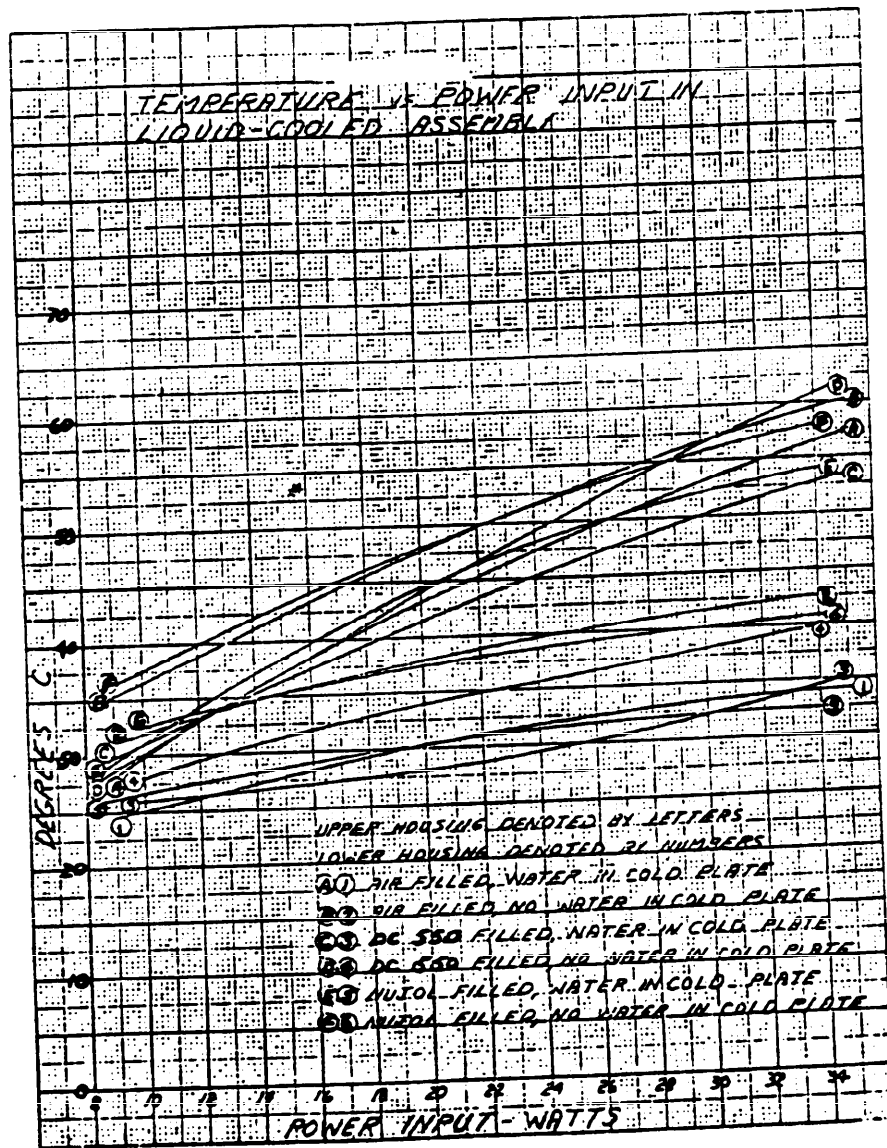 TEMPERATURE vs POWER INPUT IN
LIQUID-COOLED ASSEMBLY
70
60
50
40
30
20
10
0
DEGREES C
UPPER HOUSING DENOTED BY LETTERS
LOWER HOUSING DENOTED BY NUMBERS
A 1 AIR FILLED, WATER IN COLD PLATE
AIR FILLED, NO WATER IN COLD PLATE
C 3 DC 550 FILLED, WATER IN COLD PLATE
DC 550 FILLED, NO WATER IN COLD PLATE
E 5 NUJOL FILLED, WATER IN COLD PLATE
NUJOL FILLED, NO WATER IN COLD PLATE
8 10 12 14 16 18 20 22 24 26 28 30 32 34
POWER INPUT-WATTS